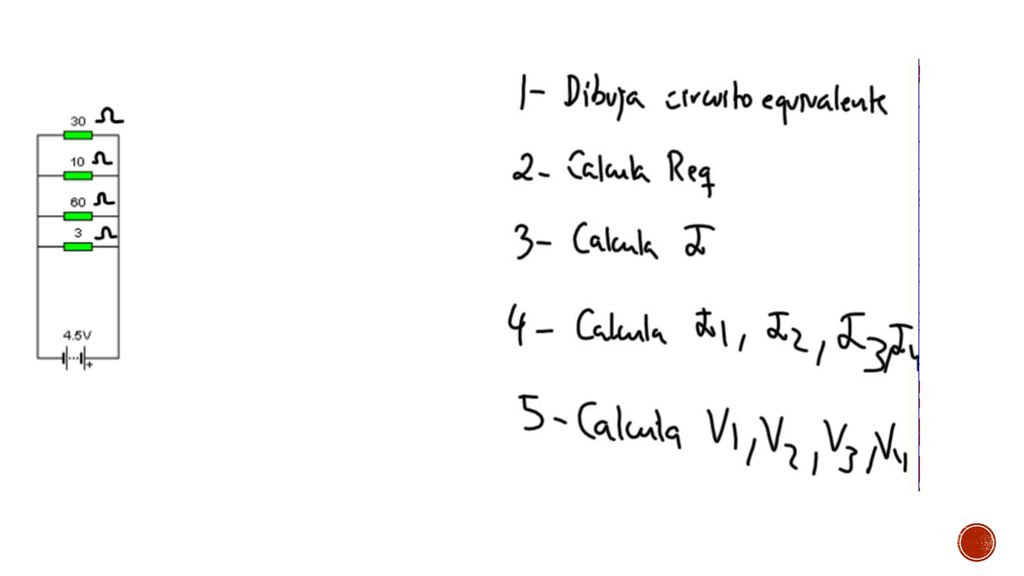 30 Ω
10 Ω
60 Ω
3 Ω
4.5V
+
1- Dibuja circuito equivalente
2- Calcula Req
3- Calcula I
4- Calcula I1, I2, I3, I4
5- Calcula V1, V2, V3, V4